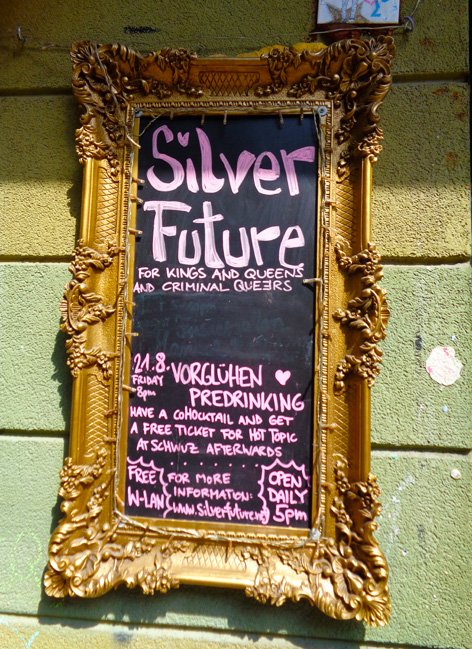 Silver
Future
FOR KINGS AND QUEENS
AND CRIMINAL QUEERS
21.8. VORGLÜHEN ♥
FRIDAY
8pm
PREDRINKING
HAVE A COHOCKTAIL AND GET
A FREE TICKET FOR HOT TOPIC
AT SCHWUZ AFTERWARDS
FREE
W-LAN
FOR MORE
INFORMATION:
www.silverfuture.net
OPEN
DAILY
5pm